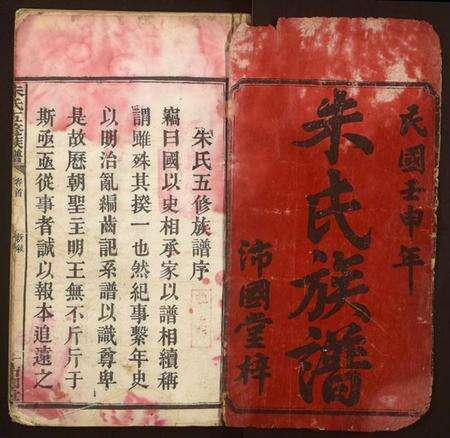 民國壬申年
朱氏族譜
沛國堂梓
朱氏五修族譜序
竊曰國以史相承家以譜相續稱
謂雖殊其揆一也然紀事繫年史
以明治亂編齒記系譜以識尊卑
是故歷朝聖主明王無不斤斤于
斯亟亟從事者誠以報本追遠之
朱氏五修族譜
卷首